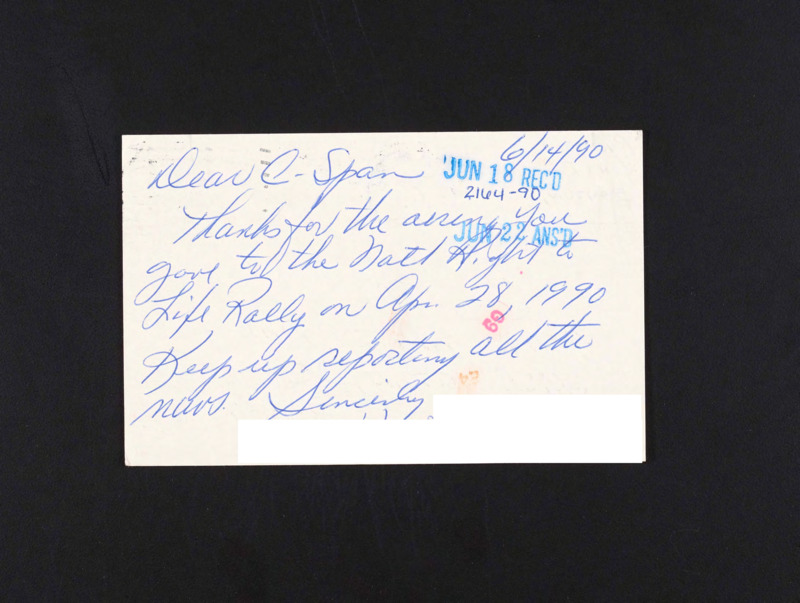 6/14/90
Dear C-Span
JUN 18 REC'D
2164-90
Thanks for the aering you
JUN 22 ANS'D
gave to the Natl Right to
Life Rally on Apr. 28, 1990
60
Keep up reporting all the
news. Sincerely